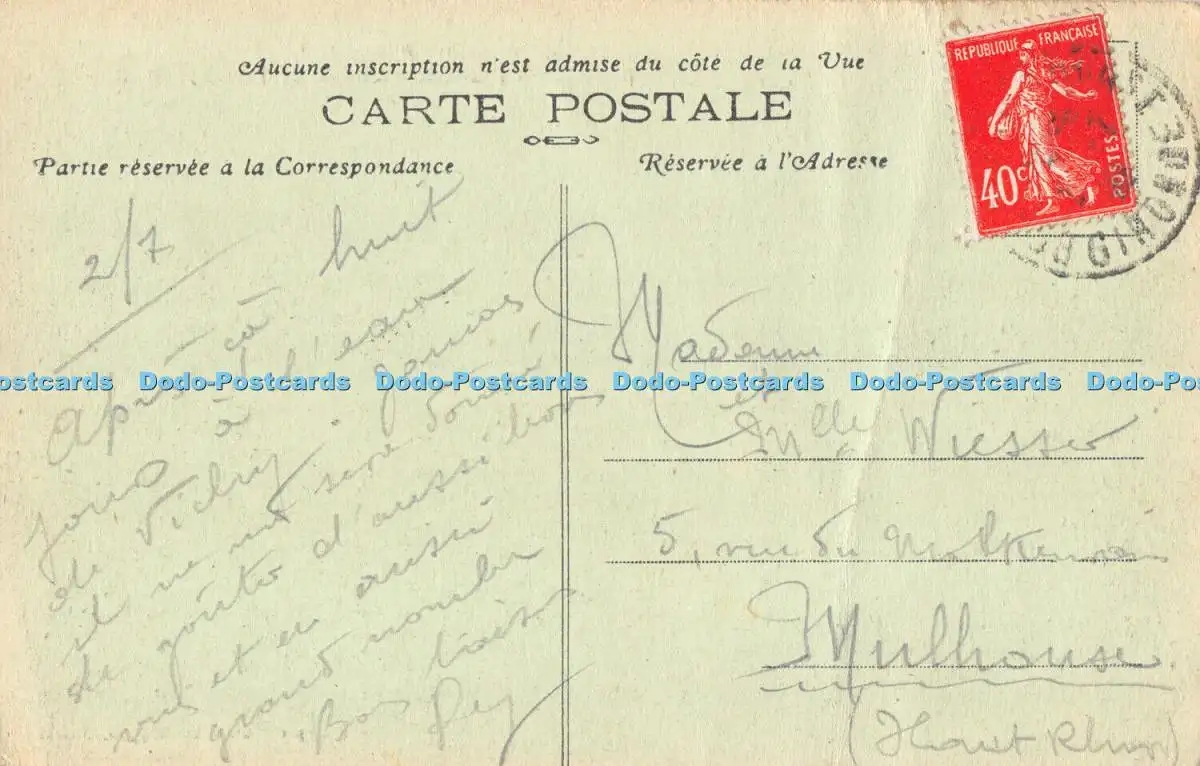 Aucune inscription n'est admise du côté de la Vue
CARTE POSTALE
Partie réservée à la Correspondance
Réservée à l'Adresse
RÉPUBLIQUE FRANÇAISE
40c
POSTES
GIRONDE
2/7
Après ça huit
jours à l'eau
de Vichy. Jamais
il ne me sera donné
de goûter d'aussi bons
vins et en aussi
grand nombre
Bons baisers
Madame
et
Mlle Wiesser
5, rue du
Mulhouse
(Haut Rhin)
Dodo-Postcards Dodo-Postcards Dodo-Postcards Dodo-Postcards Dodo-Postcards